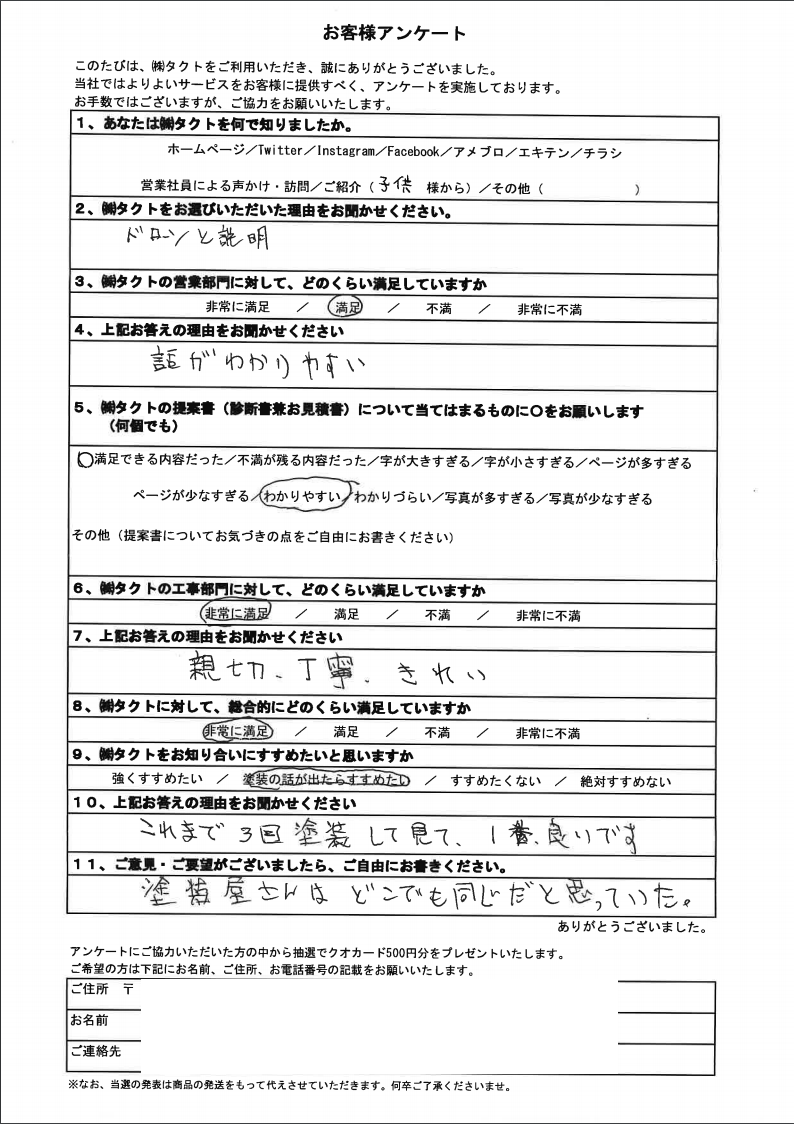 お客様アンケート
このたびは、㈱タクトをご利用いただき、誠にありがとうございました。
当社ではよりよいサービスをお客様に提供すべく、アンケートを実施しております。
お手数ではございますが、ご協力をお願いいたします。
1、あなたは㈱タクトを何で知りましたか。
ホームページ／Twitter／Instagram／Facebook／アメブロ／エキテン／チラシ
営業社員による声かけ・訪問／ご紹介（子供 様から）／その他（ ）
2、㈱タクトをお選びいただいた理由をお聞かせください。
ドローンと説明
3、㈱タクトの営業部門に対して、どのくらい満足していますか
非常に満足 ／ 満足 ／ 不満 ／ 非常に不満
4、上記お答えの理由をお聞かせください
話がわかりやすい
5、㈱タクトの提案書（診断書兼お見積書）について当てはまるものに〇をお願いします
（何個でも）
〇満足できる内容だった／不満が残る内容だった／字が大きすぎる／字が小さすぎる／ページが多すぎる
ページが少なすぎる／わかりやすい／わかりづらい／写真が多すぎる／写真が少なすぎる
その他（提案書についてお気づきの点をご自由にお書きください）
6、㈱タクトの工事部門に対して、どのくらい満足していますか
非常に満足 ／ 満足 ／ 不満 ／ 非常に不満
7、上記お答えの理由をお聞かせください
親切、丁寧、きれい
8、㈱タクトに対して、総合的にどのくらい満足していますか
非常に満足 ／ 満足 ／ 不満 ／ 非常に不満
9、㈱タクトをお知り合いにすすめたいと思いますか
強くすすめたい ／ 塗装の話が出たらすすめたい ／ すすめたくない ／ 絶対すすめない
10、上記お答えの理由をお聞かせください
これまで3回塗装して見て、1番、良いです
11、ご意見・ご要望がございましたら、ご自由にお書きください。
塗装屋さんはどこでも同じだと思っていた。
ありがとうございました。
アンケートにご協力いただいた方の中から抽選でクオカード500円分をプレゼントいたします。
ご希望の方は下記にお名前、ご住所、お電話番号の記載をお願いいたします。
ご住所 〒
お名前
ご連絡先
※なお、当選の発表は商品の発送をもって代えさせていただきます。何卒ご了承くださいませ。